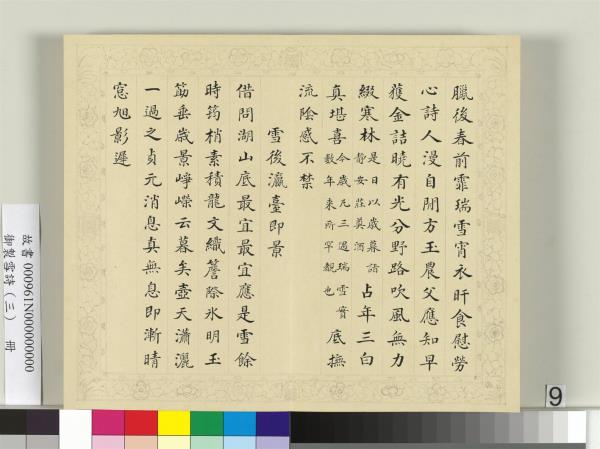 臘後春前霏瑞雪宵衣旰食慰勞
心詩人漫自開方玉農父應知早
獲金詰曉有光分野路吹風無力
綴寒林是日以歲暮詣靜安莊奠酒占年三白
真堪喜今歲凡三遇瑞雪實數年來所罕覯也底撫
流陰感不禁
雪後瀛臺即景
借問湖山底最宜最宜應是雪餘
時筠梢素積龍文織簷際氷明玉
筯垂歲景崢嶸云暮矣壺天瀟灑
一過之貞元消息真無息即漸晴
窓旭影遲
故書 000961N000000000
御製雪詩(三) 冊
9